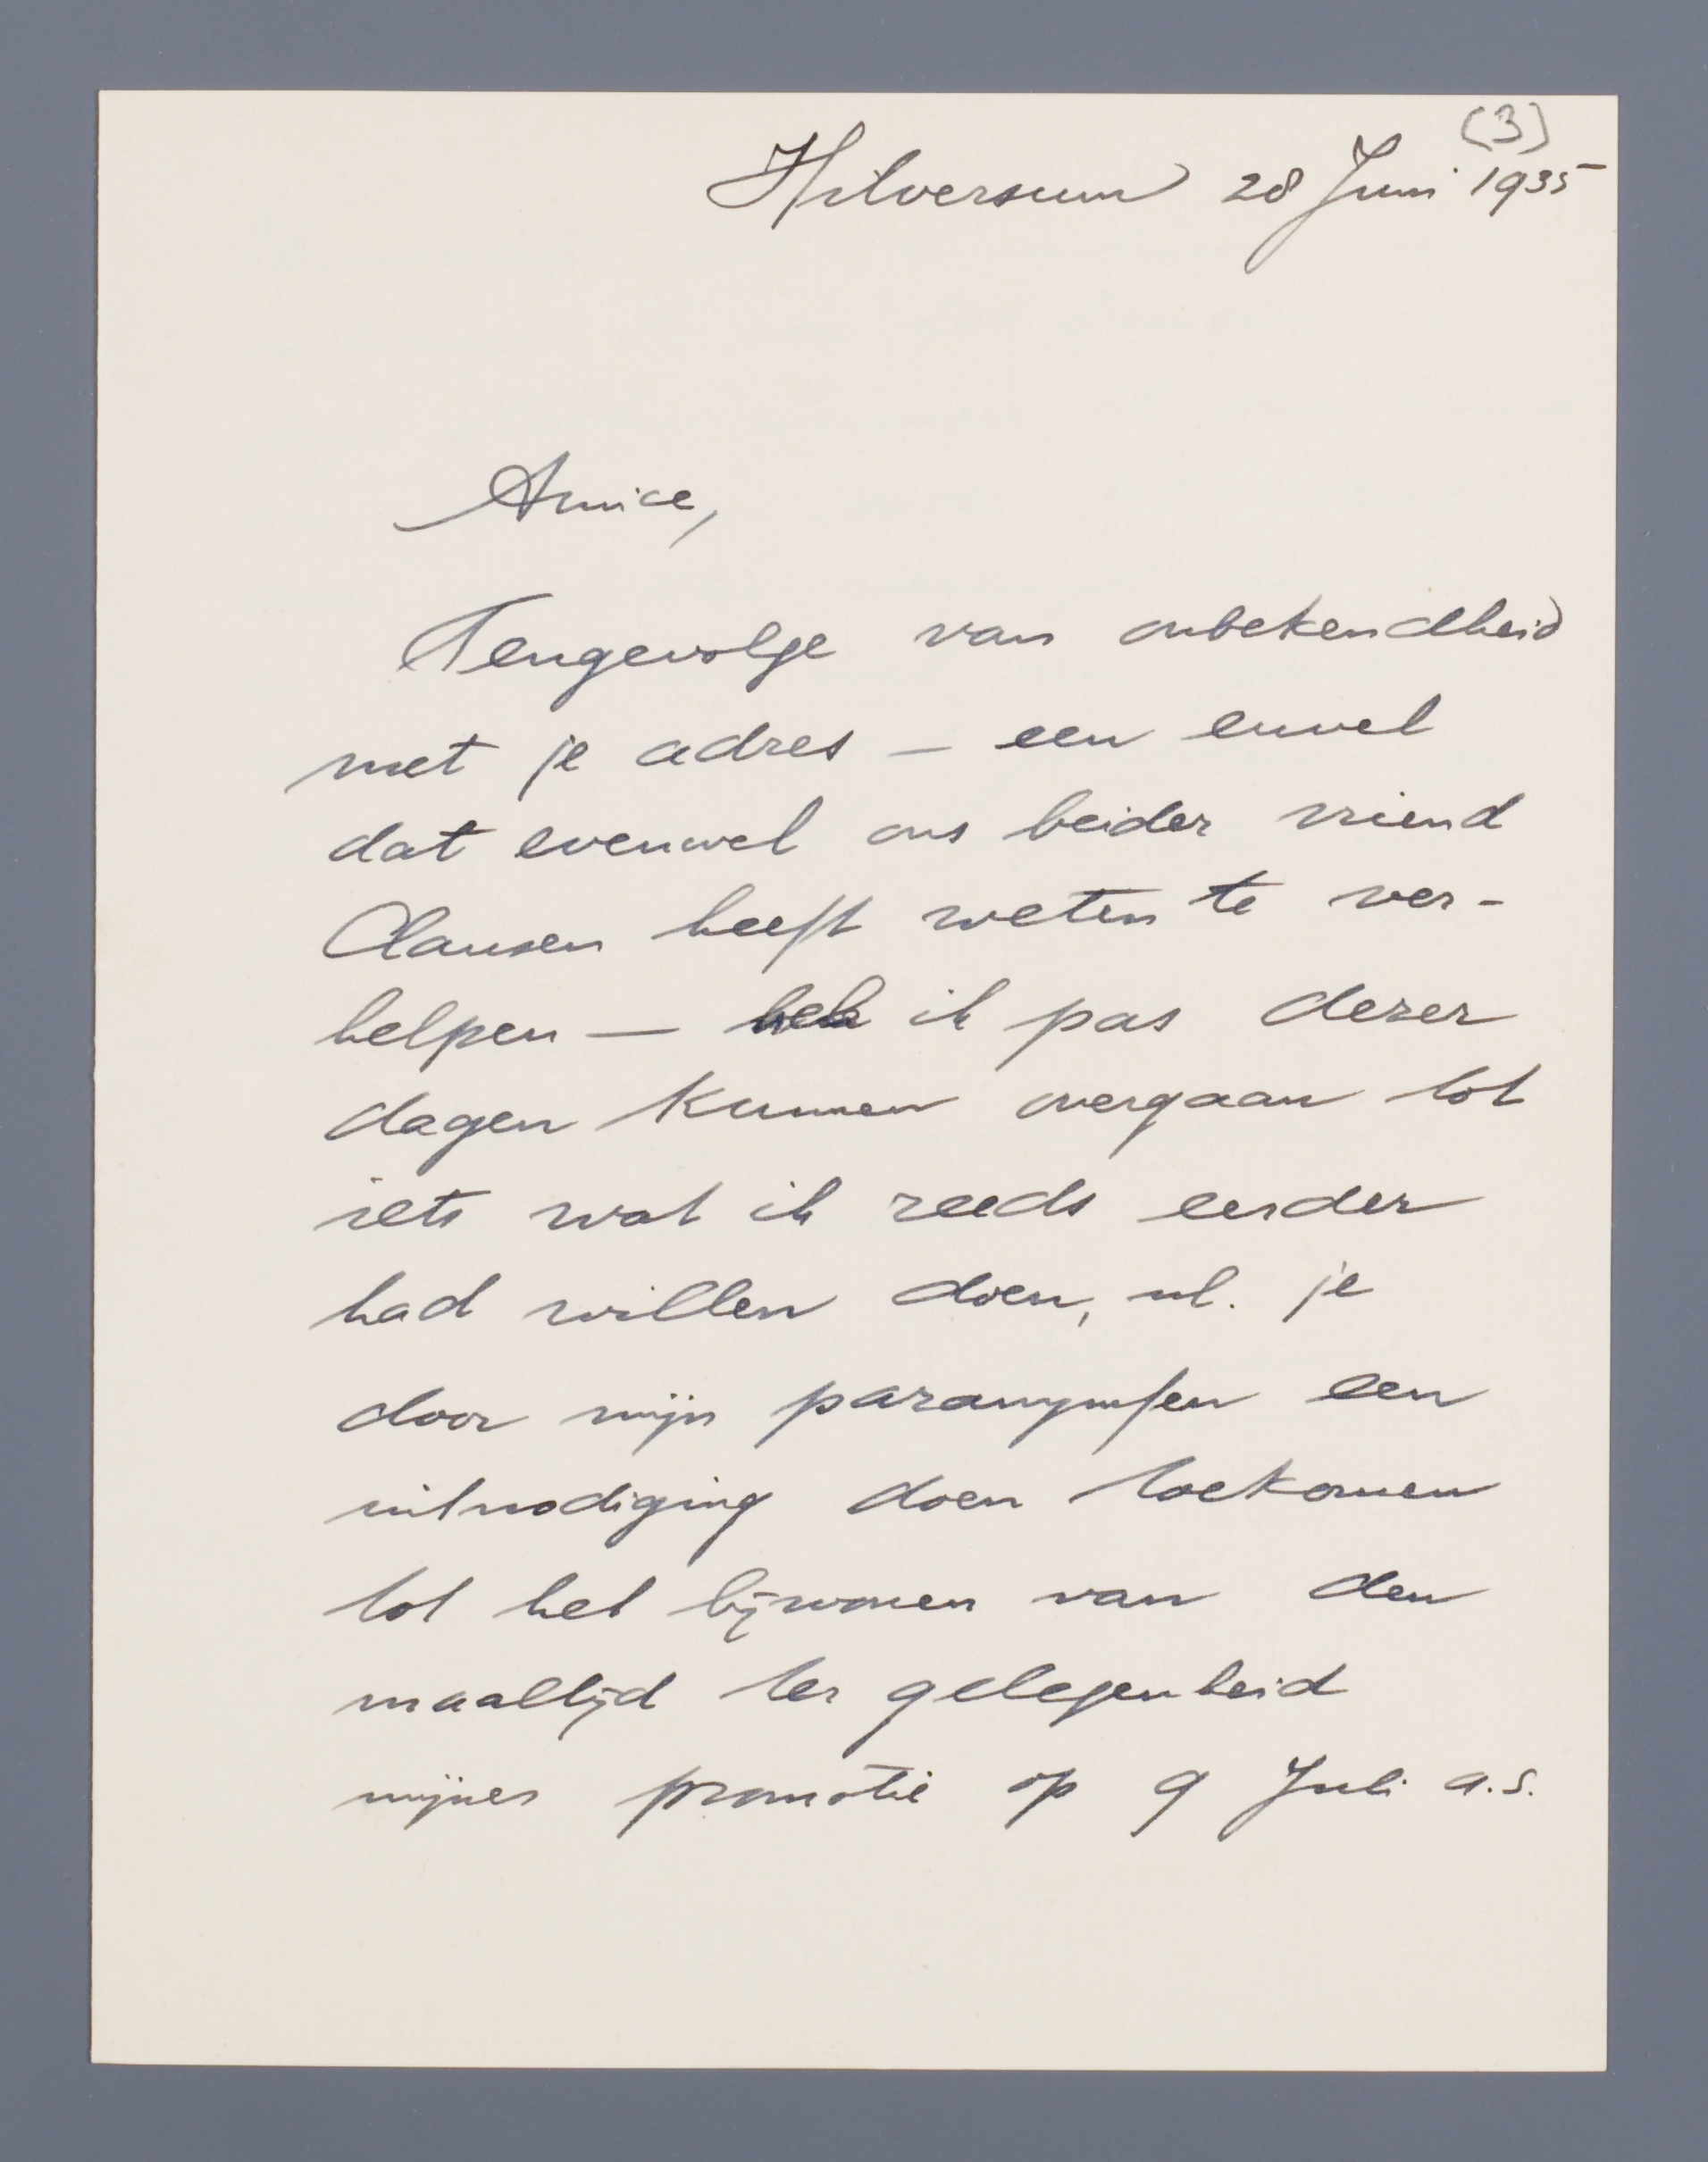 (3)
Hilversum 28 Juni 1935
Amice,
Tengevolge van onbekendheid
met je adres — een euvel
dat evenwel ons beider vriend
Clausen heeft weten te ver-
helpen — heb ik pas dezer
dagen kunnen overgaan tot
iets wat ik reeds eerder
had willen doen, nl. je
door mijn paranymfen een
uitnodiging doen toekomen
tot het bijwonen van den
maaltijd ter gelegenheid
mijner promotie op 9 Juli a.s.